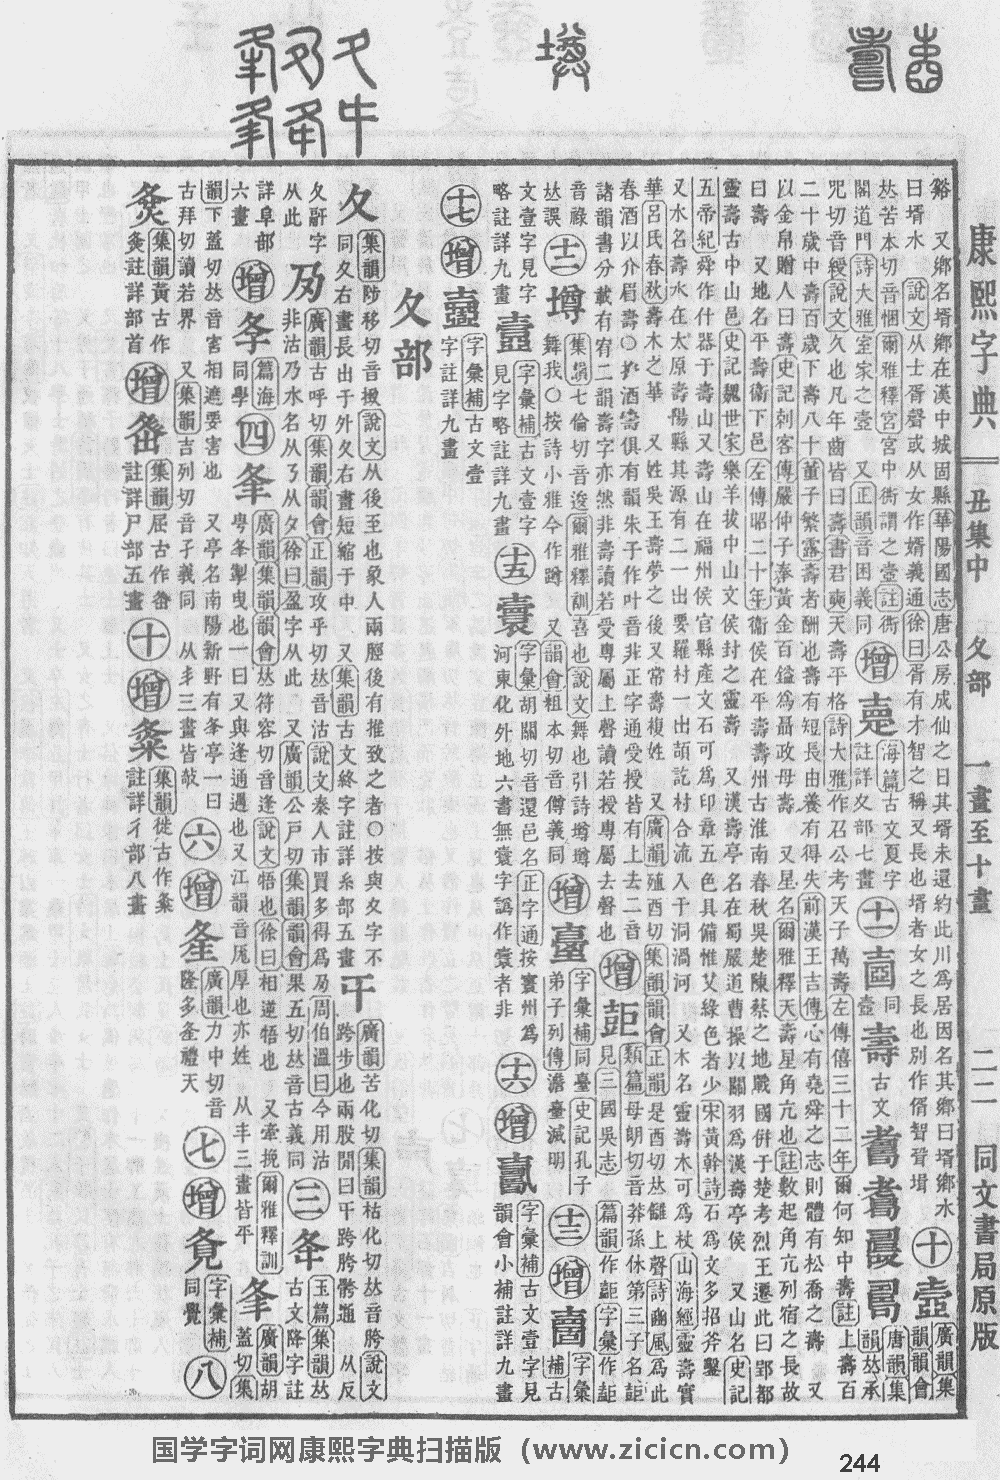 康熙字典 丑集中 夂部 一畫至十畫 二二 同文書局原版
谿 又鄉名壻鄉在漢中城固縣華陽國志唐公房成仙之日其壻未還約此川爲居因名其鄉曰壻鄉水 十 壼 廣韻集韻韻會
曰壻水 說文从士胥聲或从女作婿義通徐曰胥有才智之稱又長也壻者女之長也別作偦智聟壻 唐韻集
𠀤苦本切音悃爾雅釋宮宮中衖謂之壼註衖
閣道門詩大雅室家之壼 又正韻音困義同 增 壾 海篇古文夏字註詳夊部七畫 十一 壺同 壽 古文 韻𠀤承
呪切音綬說文久也凡年齒皆曰壽書君奭天壽平格詩大雅作召公考天子萬壽左傳僖三十二年爾何知中壽註上壽百
二十歲中壽百歲下壽八十董子繁露壽者酬也壽有短長由養有得失前漢王吉傳心有堯舜之志則體有松喬之壽 又
以金帛贈人曰壽史記刺客傳嚴仲子奉黃金百鎰爲聶政母壽 又星名爾雅釋天壽星角亢也註數起角亢列宿之長故
曰壽 又地名平壽衞下邑左傳昭二十年衞侯在平壽壽州古淮南春秋吳楚陳蔡之地戰國倂于楚考烈王遷此曰郢都
靈壽古中山邑史記魏世家樂羊拔中山文侯封之靈壽 又漢壽亭名在蜀嚴道曹操以關羽爲漢壽亭侯 又山名史記
五帝紀舜作什器于壽山又壽山在福州侯官縣產文石可爲印章五色具備惟艾綠色者少宋黃幹詩石爲文多招斧鑿
又水名壽水在太原壽陽縣其源有二一出要羅村一出頡訖村合流入于洞渦河 又木名靈壽木可爲杖山海經靈壽實
華呂氏春秋壽木之華 又姓吳王壽夢之後又常壽複姓 又廣韻殖酉切集韻韻會正韻是酉切𠀤讎上聲詩豳風爲此
春酒以介眉壽○按酒壽俱有韻朱子作叶音非正字通受授皆有上去二音
諸韻書分載有宥二韻壽字亦然非壽讀若受專屬上聲讀若授專屬去聲也 增 𡔷 類篇母朗切音莽孫休第三子名𡔷
見三國吳志 篇韻作𡔷字彙作𡔷
音祿 十二 壿 集韻七倫切音逡爾雅釋訓喜也說文舞也引詩壿壿
舞我○按詩小雅今作蹲 又韻會祖本切音僔義同 增 臺 字彙補同臺史記孔子
弟子列傳澹臺滅明 十三 增 字彙
補古
文壹字見字
略註詳九畫 壹 字彙補古文壹字
見字略註詳九畫 十五 㒸 字彙胡關切音還邑名正字通按寰州爲
河東化外地六書無㒸字譌作㒸者非 十六 增 字彙補古文壹字見
韻會小補註詳九畫
十七 增 字彙補古文壹
字註詳九畫
夂部
夂 集韻陟移切音㨖說文从後至也象人兩脛後有推致之者○按與夊字不
同夂右畫長出于外夊右畫短縮于中 又集韻古文終字註詳糸部五畫 㐄 廣韻苦化切集韻枯化切𠀤音胯說文
跨步也兩股閒曰㐄跨胯髂逎 从反
夂 辭字
从此 夃 廣韻古呼切集韻韻會正韻攻乎切𠀤音沽說文秦人市買多得爲夃周伯溫曰今用沽
非沽乃水名从𠄎从夂徐曰盈字从此 又廣韻公戸切集韻韻會果五切𠀤音古義同 三 夅 玉篇集韻𠀤
古文降字註
詳阜部
六畫 增 夅 篇海
同學 四 夆 廣韻集韻韻會𠀤符容切音逢說文悟也徐曰相逆悟也 又牽挽爾雅釋訓
甹夆掣曳也一曰又與逢通遇也又江韻音厖厚也亦姓 从丰三畫皆平 夆 廣韻胡
蓋切集
韻下蓋切𠀤音害相遮要害也 又亭名南陽新野有夆亭一曰
古拜切讀若界 又集韻吉列切音孑義同 从丯三畫皆㪇 六 增 夆 廣韻力中切音
隆多夆禮天 七 增 覓 字彙補
同覺 八
夋 集韻黃古作
夋註詳部首 增 畚 集韻屈古作畚
註詳尸部五畫 十 增 夈 集韻徙古作夈
註詳彳部八畫
国学字词网康熙字典扫描版（www.zicicn.com）
244